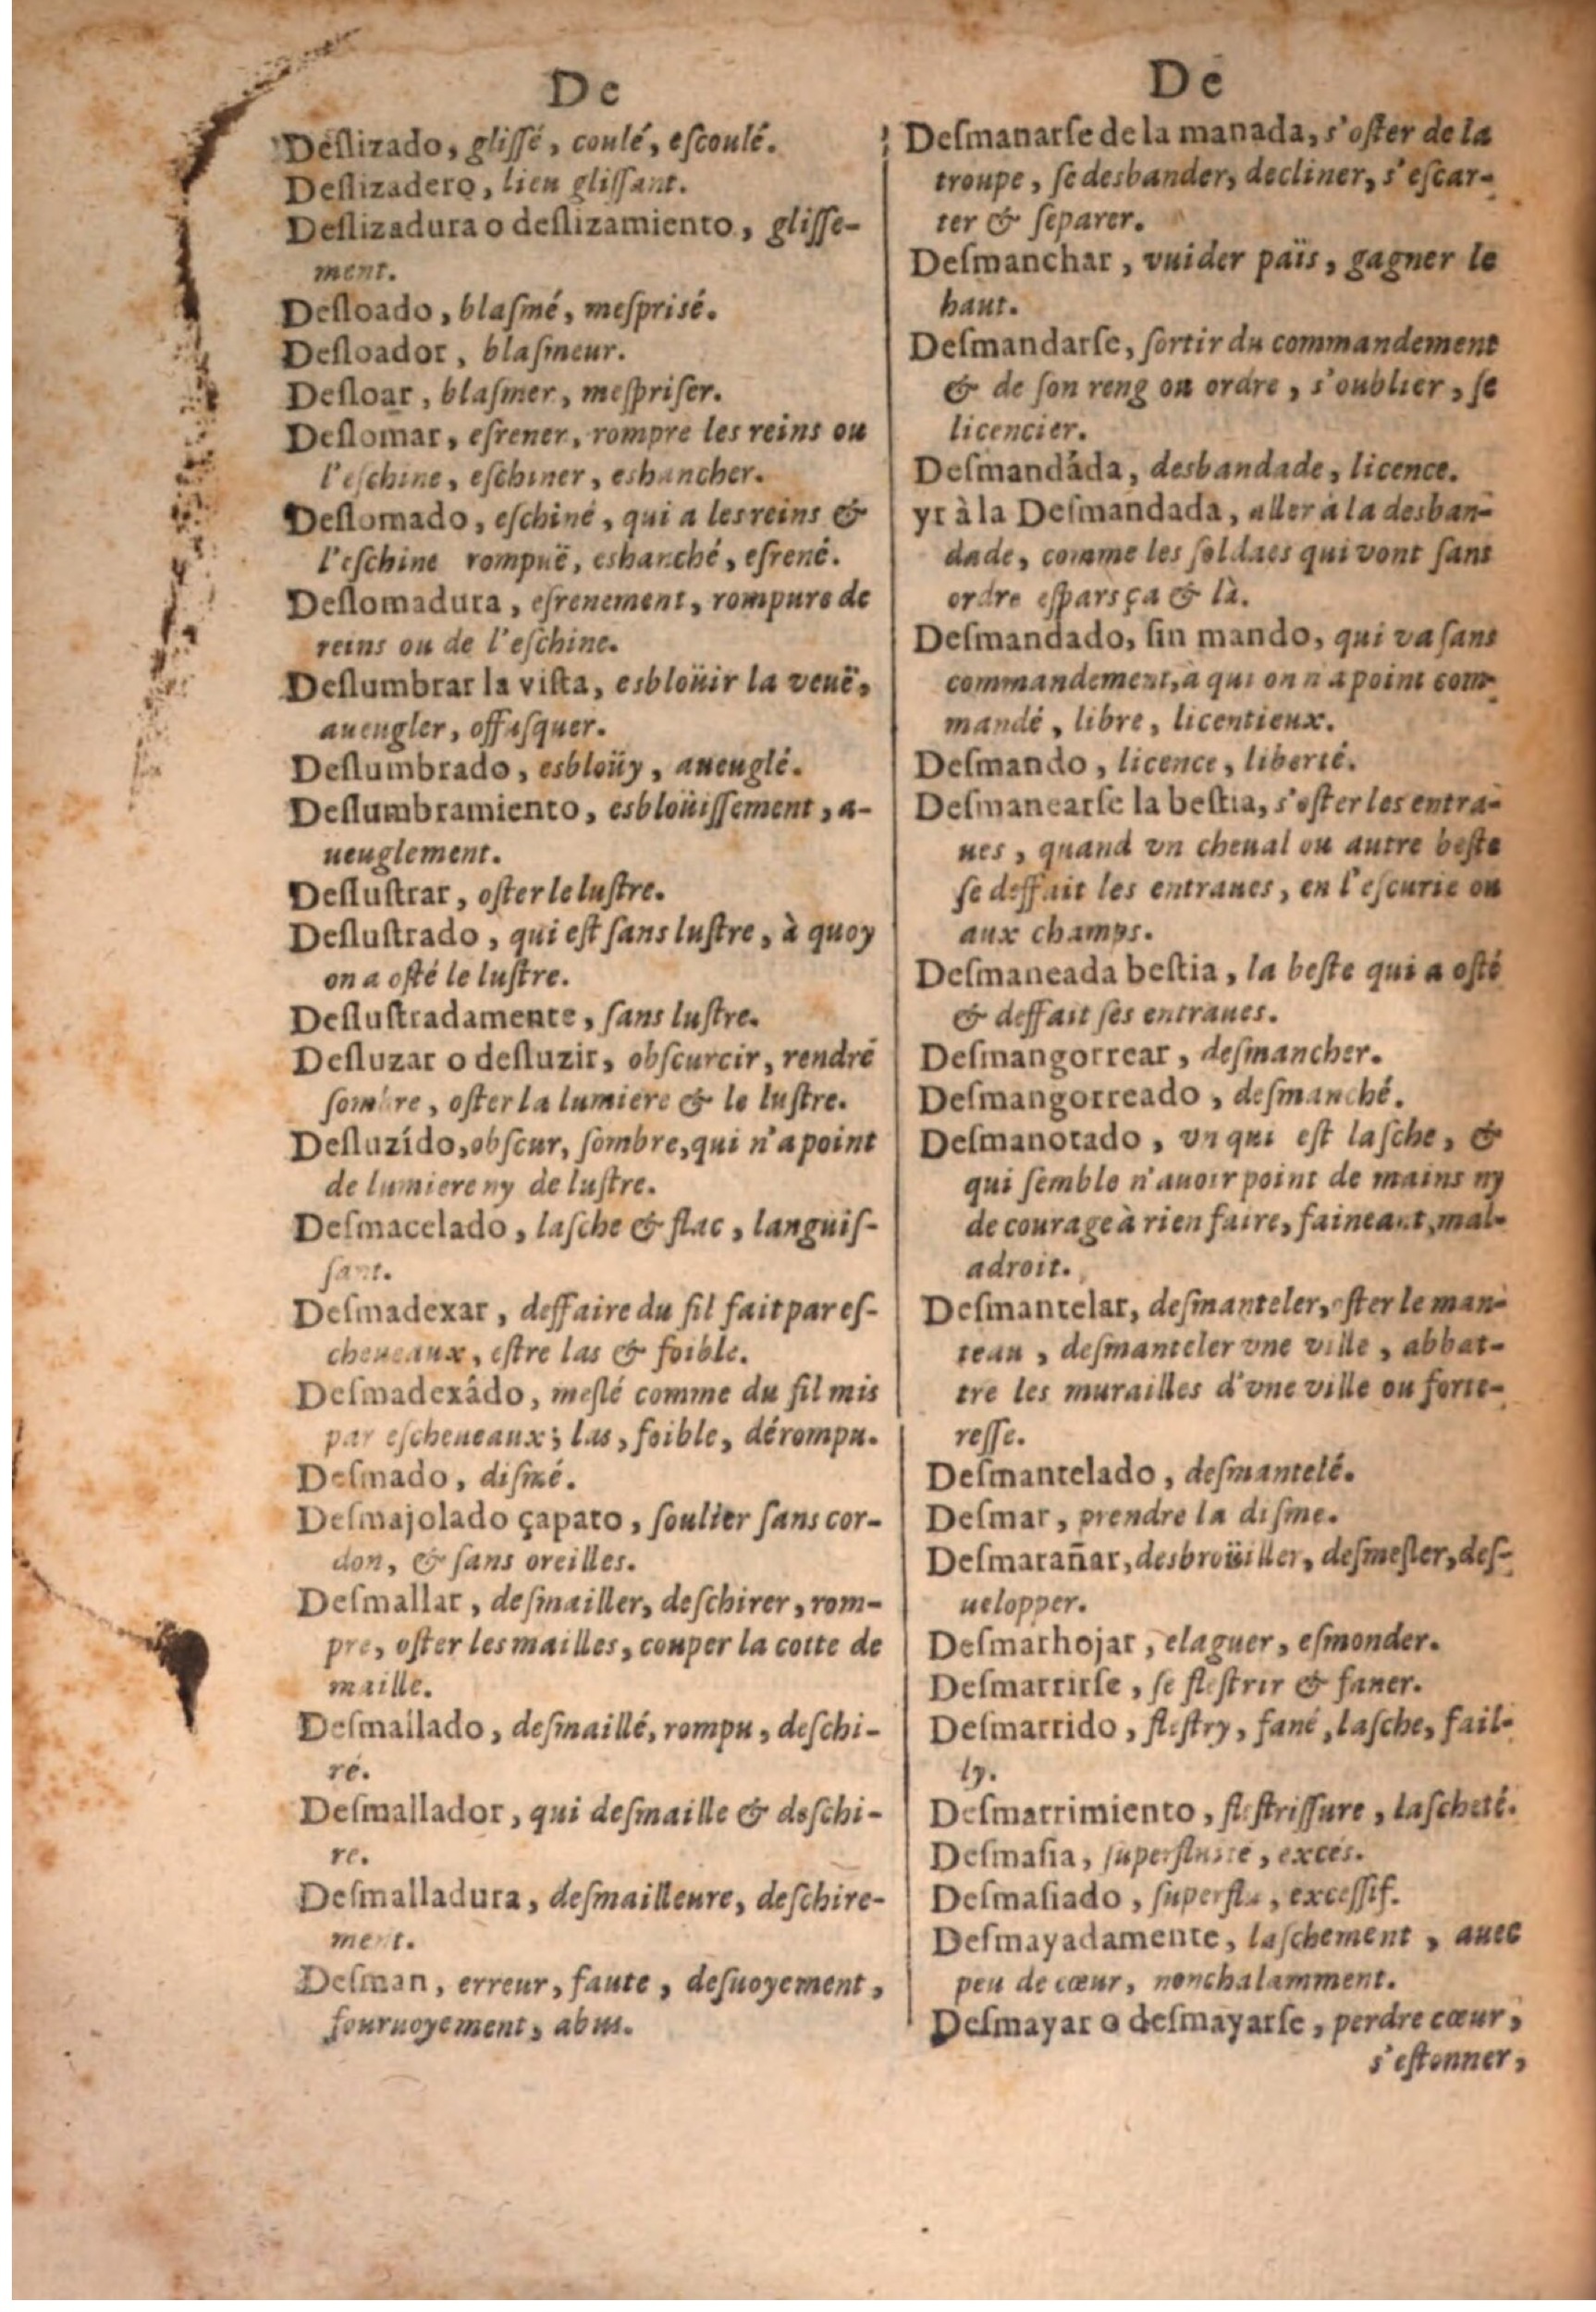 De
Deſlizado, gliſſé, coulé, eſcoulé.
Deſlizadero, lieu gliſſant.
Deſlizadura o deſlizamiento, gliſſe-
ment.
Deſloado, blaſmé, meſprisé.
Deſloador, blaſmeur.
Deſloar, blaſmer, meſpriſer.
Deſlomar, efrener, rompre les reins ou
l'eſchine, eſchiner, eshancher.
Deſlomado, eſchiné, qui a les reins &
l'eſchine rompuë, eshanché, efrené.
Deſlomadura, efrenement, rompure de
reins ou de l'eſchine.
Deſlumbrar la viſta, esbloüir la veuë,
aueugler, offuſquer.
Deſlumbrado, esbloüy, aueuglé.
Deſlumbramiento, esbloüiſſement, a-
ueuglement.
Deſluſtrar, oſter le luſtre.
Deſluſtrado, qui eſt ſans luſtre, à quoy
on a oſté le luſtre.
Deſluſtradamente, ſans luſtre.
Deſluzar o deſluzir, obſcurcir, rendré
ſombre, oſter la lumiere & le luſtre.
Deſluzído, obſcur, ſombre, qui n'a point
de lumiere ny de luſtre.
Deſmacelado, laſche & flac, languiſ-
ſant.
Deſmadexar, deffaire du fil fait par eſ-
cheueaux, eſtre las & foible.
Deſmadexádo, meſlé comme du fil mis
par eſcheueaux; las, foible, dérompu.
Deſmado, diſmé.
Deſmajolado çapato, ſoulier ſans cor-
don, & ſans oreilles.
Deſmallar, deſmailler, deſchirer, rom-
pre, oſter les mailles, couper la cotte de
maille.
Deſmallado, deſmaillé, rompu, deſchi-
ré.
Deſmallador, qui deſmaille & deſchi-
re.
Deſmalladura, deſmailleure, deſchire-
ment.
Deſman, erreur, faute, deſuoyement,
fouruoyement, abus.
De
Deſmanarſe de la manada, s'oſter de la
troupe, ſe desbander, decliner, s'eſcar-
ter & ſeparer.
Deſmanchar, vuider païs, gagner le
haut.
Deſmandarſe, ſortir du commandement
& de ſon reng ou ordre, s'oublier, ſe
licencier.
Deſmandáda, desbandade, licence.
yr à la Deſmandada, aller à la desban-
dade, comme les ſoldaes qui vont ſans
ordre eſpars ça & là.
Deſmandado, ſin mando, qui va ſans
commandement, à qui on n'a point com-
mandé, libre, licentieux.
Deſmando, licence, liberté.
Deſmanearſe la beſtia, s'oſter les entra-
ues, quand vn cheual ou autre beſte
ſe deffait les entraues, en l'eſcurie ou
aux champs.
Deſmaneada beſtia, la beſte qui a oſté
& deffait ſes entraues.
Deſmangorrear, deſmancher.
Deſmangorreado, deſmanché.
Deſmanotado, vn qui eſt laſche, &
qui ſemble n'auoir point de mains ny
de courage à rien faire, faineant, mal-
adroit.
Deſmantelar, deſmanteler, oſter le man-
teau, deſmanteler vne ville, abbat-
tre les murailles d'vne ville ou forte-
reſſe.
Deſmantelado, deſmantelé.
Deſmar, prendre la diſme.
Deſmarañar, desbroüiller, deſmeſler, deſ-
uelopper.
Deſmarhojar, elaguer, eſmonder.
Deſmarrirſe, ſe fleſtrir & faner.
Deſmarrido, fleſtry, fané, laſche, fail-
ly.
Deſmarrimiento, fleſtriſſure, laſcheté.
Deſmaſia, ſuperfluité, excés.
Deſmaſiado, ſuperflu, exceſſif.
Deſmayadamente, laſchement, auec
peu de cœur, nonchalamment.
Deſmayar o deſmayarſe, perdre cœur,
s'eſtonner,